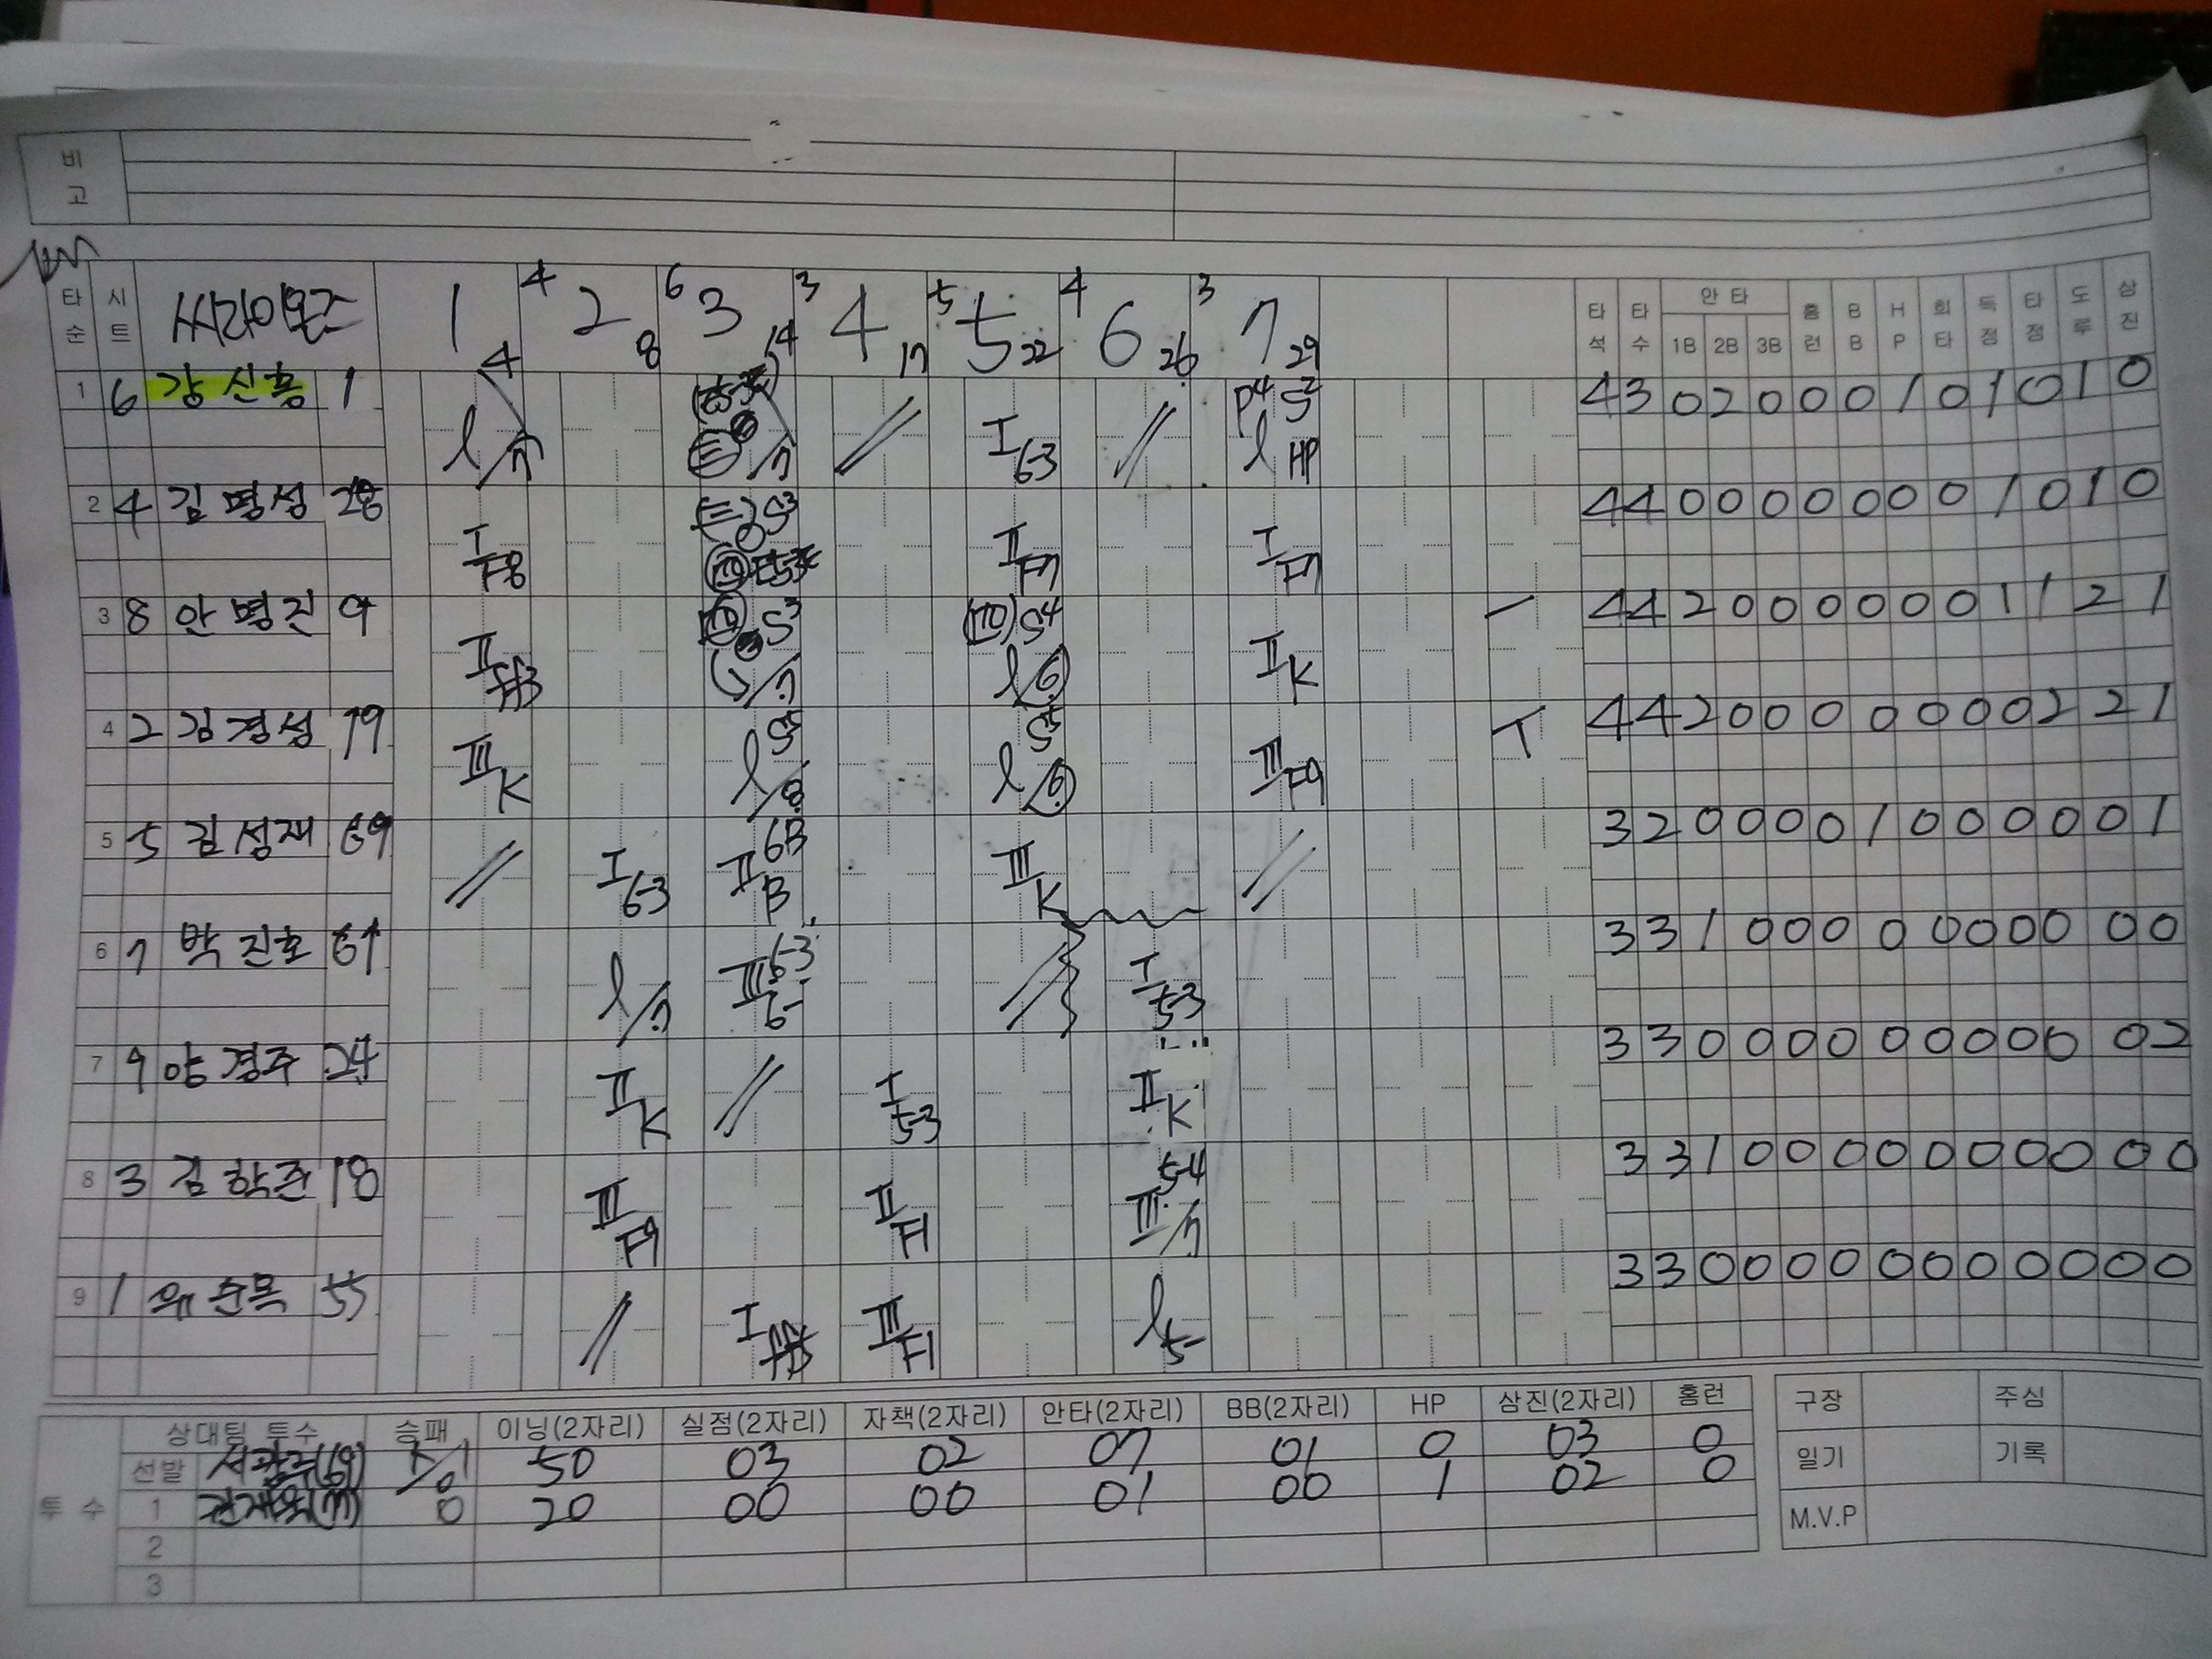 비고
타순 시트 1 4 4 2 8 6 3 14 3 4 17 5 5 22 4 6 26 3 7 29 타석 타수 안타 1B 2B 3B 홈런 BB HP 희타 득점 타점 도루 삼진
1 6 강신홍 1 I 6-3 P4 S2 HP 4 3 0 2 0 0 0 1 0 1 0 1 0
2 4 김명성 28 I F8 S3 II F7 I F7 4 4 0 0 0 0 0 0 0 1 0 1 0
3 8 안명진 9 II S3 S4 II K 4 4 2 0 0 0 0 0 0 1 1 2 1
4 2 김경성 19 III K S5 S5 III F9 4 4 2 0 0 0 0 0 0 0 2 2 1
5 5 김성재 69 I 6-3 II 6B B III K 3 2 0 0 0 0 1 0 0 0 0 0 1
6 7 박진호 61 7 III 6-3 6- I 5-3 3 3 1 0 0 0 0 0 0 0 0 0 0
7 9 양경주 24 II K I 5-3 II K 3 3 0 0 0 0 0 0 0 0 0 0 2
8 3 김학준 18 III F9 II F1 III 5-4 7 3 3 1 0 0 0 0 0 0 0 0 0 0
9 1 55 I III F1 5- 3 3 0 0 0 0 0 0 0 0 0 0 0
투수 상대팀 투수 승패 이닝(2자리) 실점(2자리) 자책(2자리) 안타(2자리) BB(2자리) HP 삼진(2자리) 홈런
선발 50 03 02 07 01 0 03 0
1 0 20 00 00 01 00 1 02 0
2
3
구장 주심
일기 기록
M.V.P